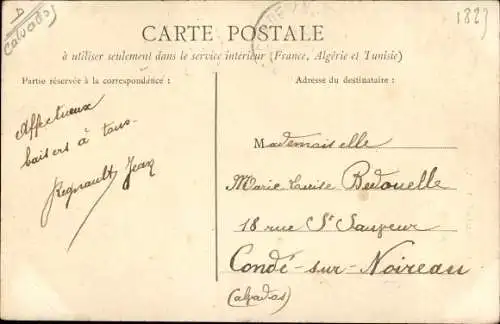 D
Calvados
1883
CARTE POSTALE
à utiliser seulement dans le service intérieur (France, Algérie et Tunisie)
Partie réservée à la correspondance :
Affectueux
baisers à tous-
Regnault Jean
Adresse du destinataire :
Mademoiselle
Marie Louise Bedouelle
18 rue St Sauveur
Condé-sur-Noireau
(Calvados)